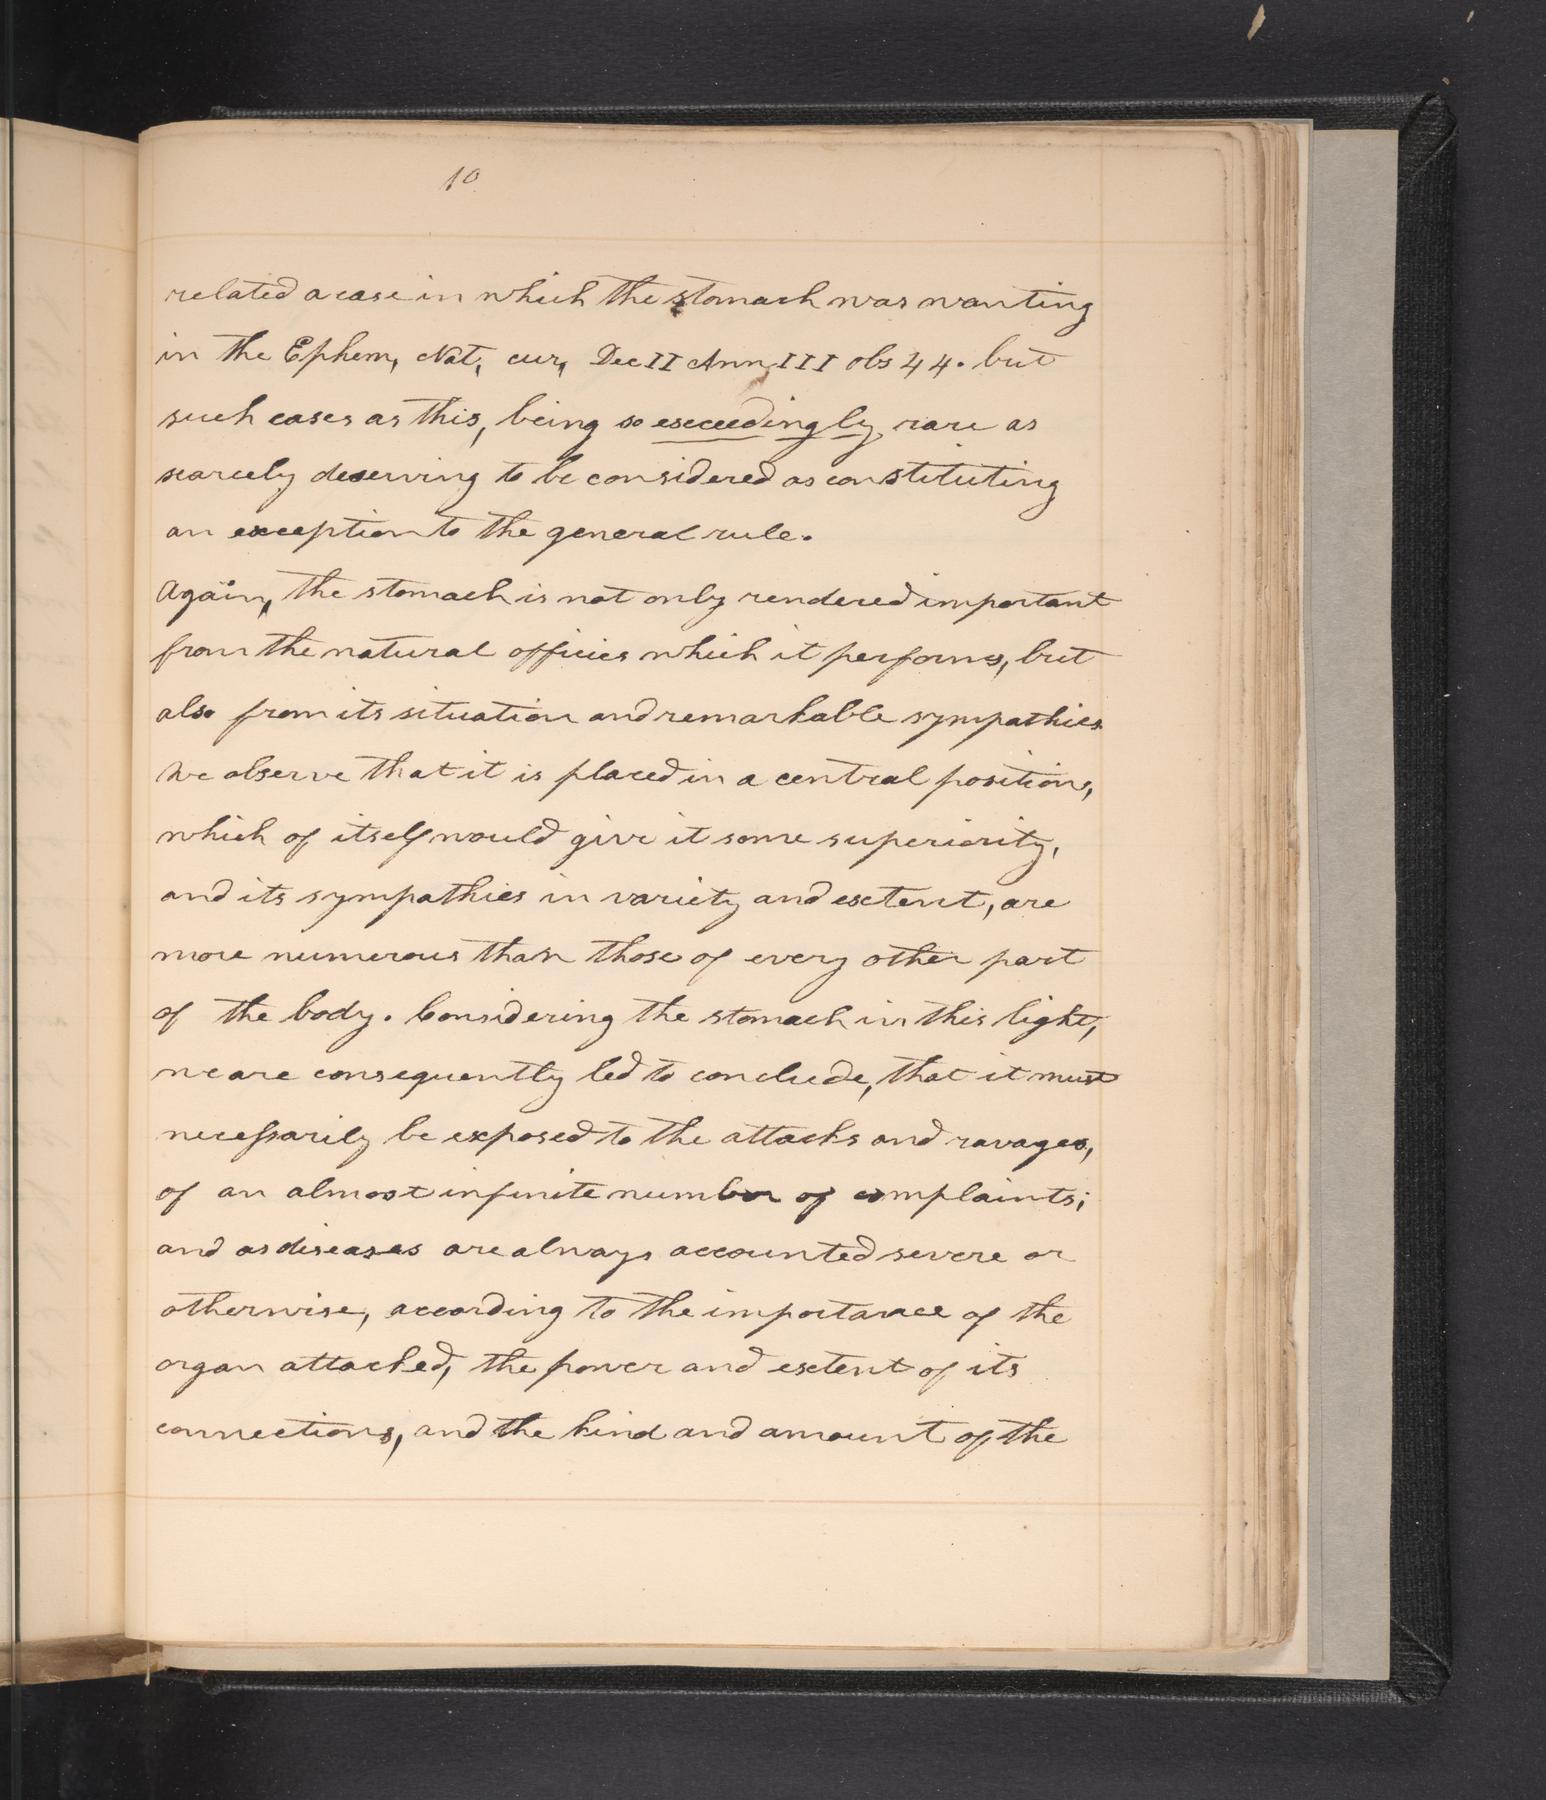 10
related a case in which the stomach was wanting
in the Ephem, Nat, cur, Dec II Ann, III obs 44. but
such cases as this, being so exceedingly rare as
scarcely deserving to be considered as constituting
an exception to the general rule.
Again, the stomach is not only rendered important
from the natural offices which it performs, but
also from its situation and remarkable sympathies.
We observe that it is placed in a central position,
which of itself would give it some superiority,
and its sympathies in variety and extent, are
more numerous than those of every other part
of the body. Considering the stomach in this light,
we are consequently led to conclude, that it must
necessarily be exposed to the attacks and ravages,
of an almost infinite number of complaints;
and as diseases are always accounted severe or
otherwise, according to the importance of the
organ attacked, the power and extent of its
connections, and the kind and amount of the